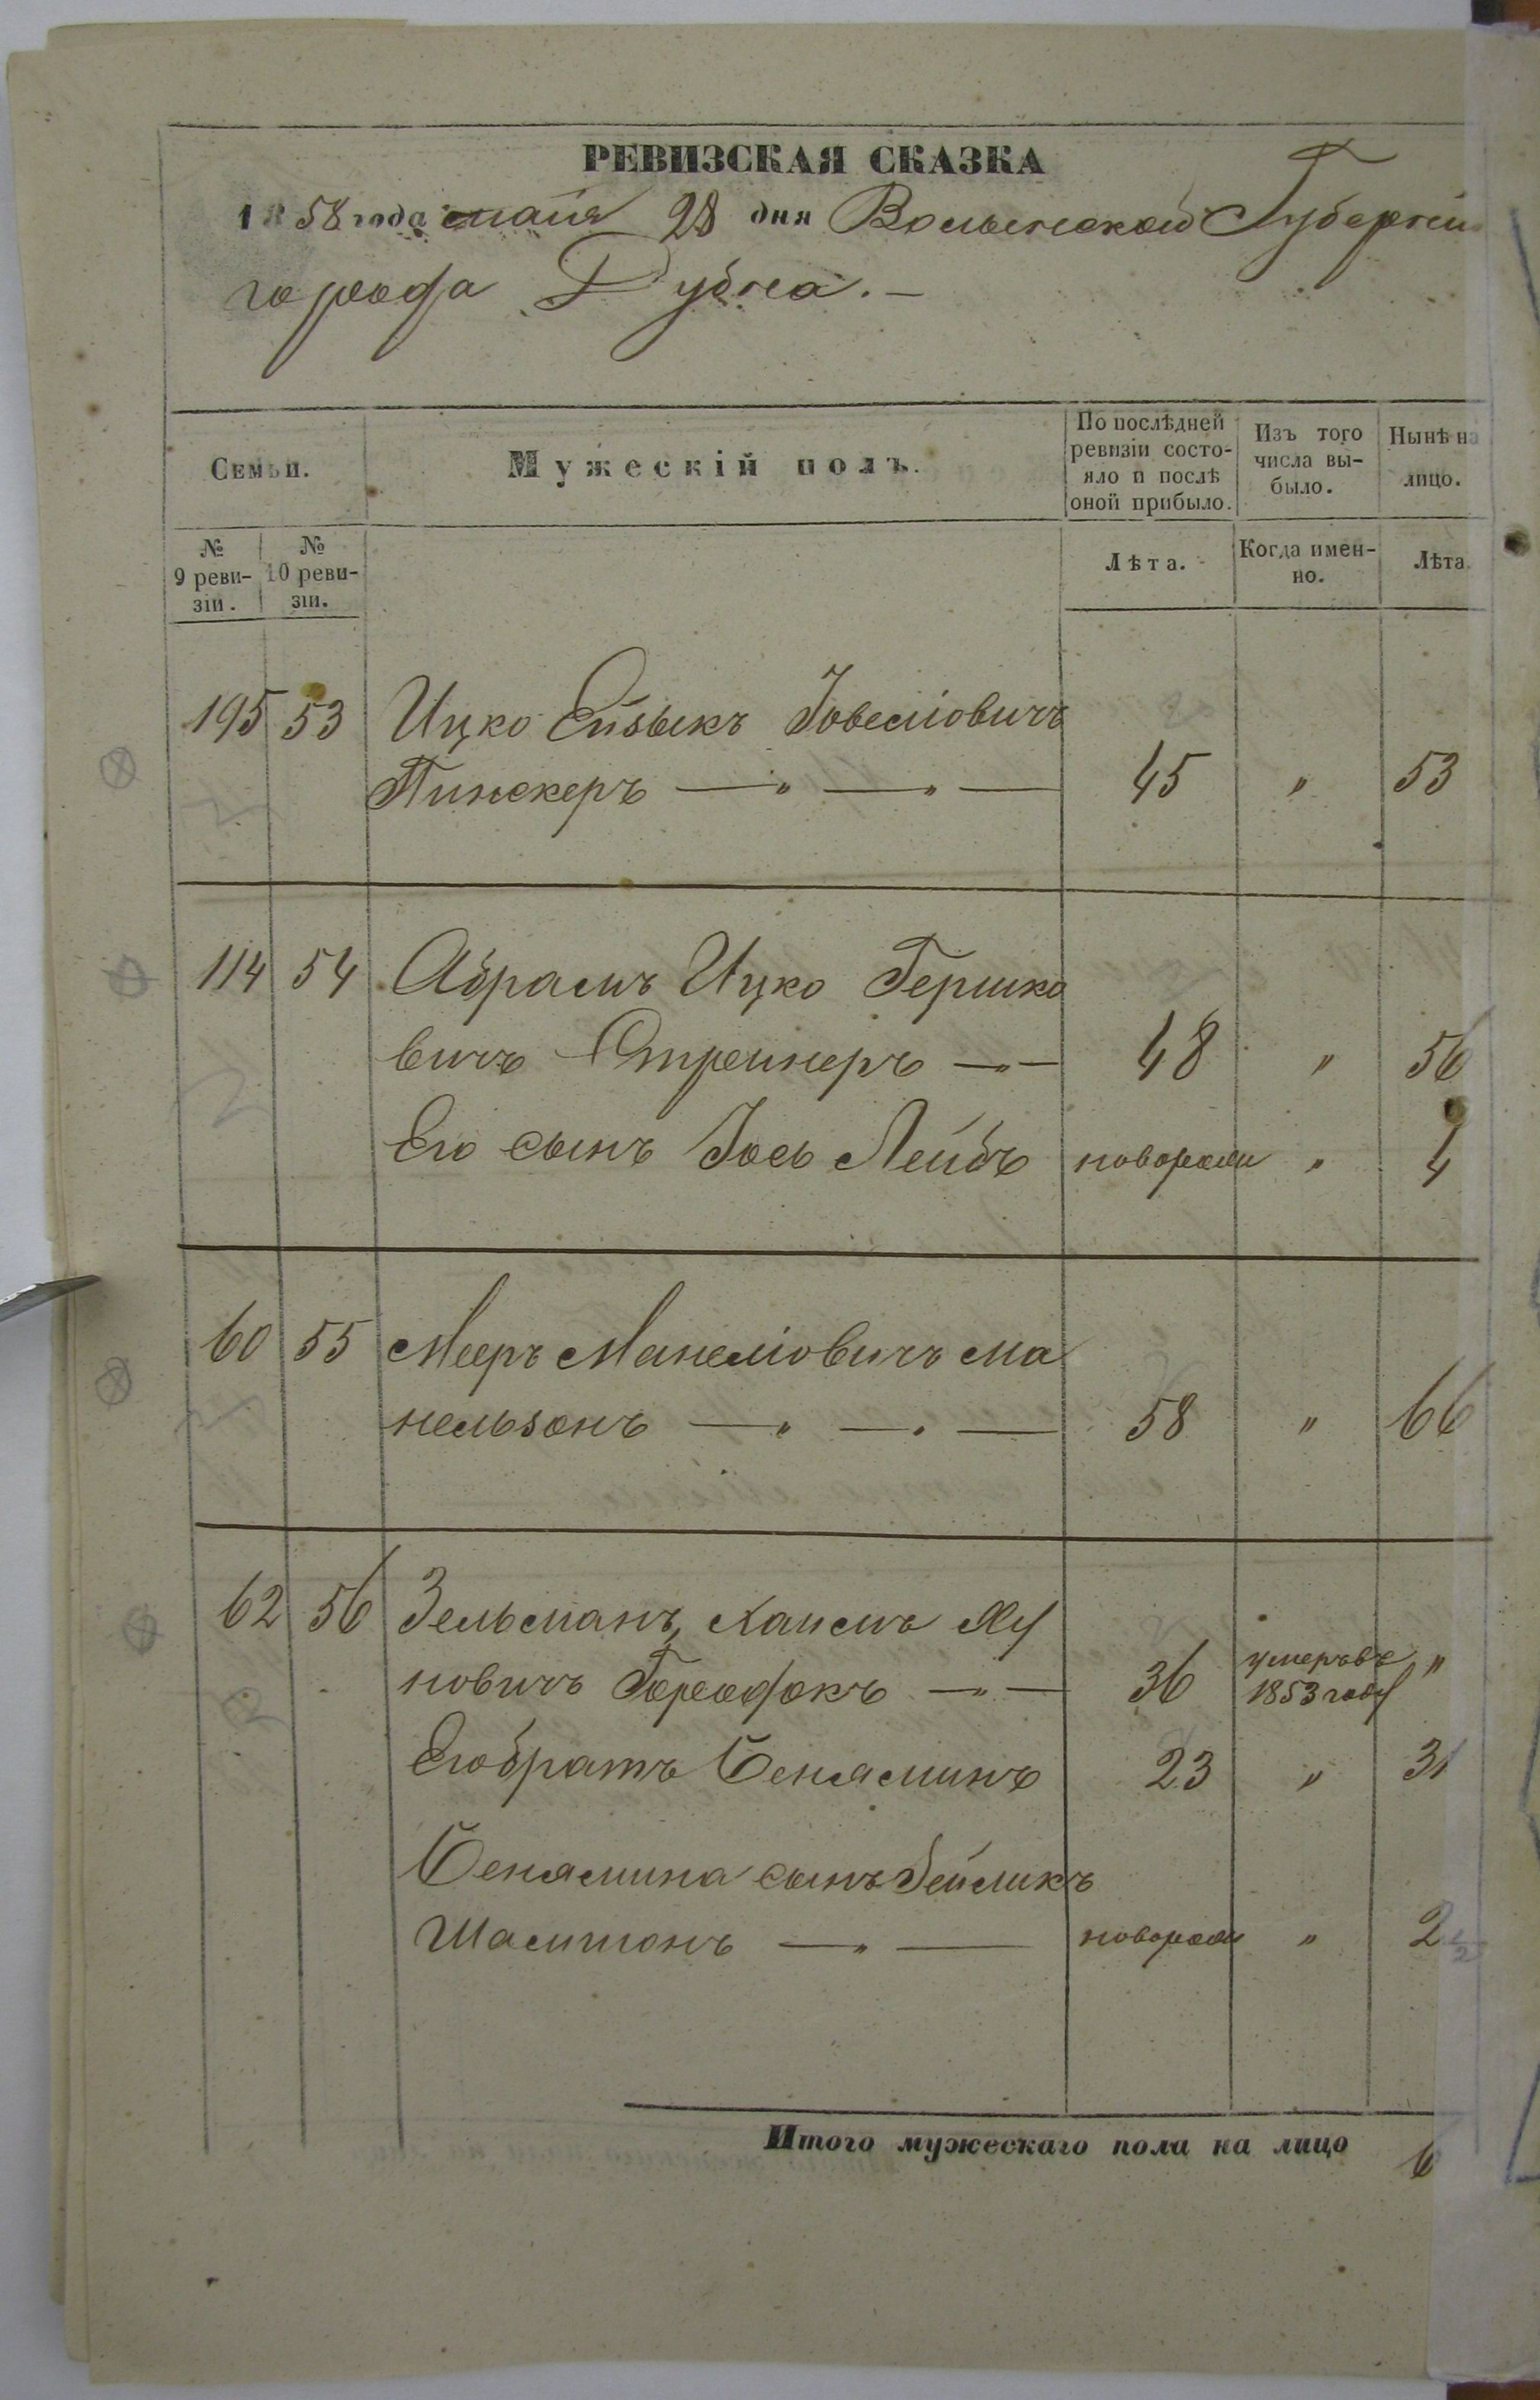 РЕВИЗСКАЯ СКАЗКА
1858 года мая 28 дня Волынской Губернiи
города Дубна. —
Семьи.
Мужескiй полъ.
По послѣдней ревизiи состо-
яло и послѣ оной прибыло.
Изъ того числа вы-
было.
Нынѣ на лицо.
№ 9 реви-
зiи.
№ 10 реви-
зiи.
Лѣта.
Когда имен-
но.
Лѣта.
195 53 Ицко Ейзыкъ Iовелiовичъ
Пинскеръ — „ — „ — 45 „ 53
114 54 Абрамъ Ицко Гершко
вичъ Стрейнеръ — „ — 48 „ 56
Его сынъ Iось Лейбъ новорожд „ 4
60 55 Мееръ Манелiовичъ Ма
нельзонъ — „ — „ — 58 „ 66
62 56 Зельманъ, Хаимъ
новичъ Городокъ — „ — 36 умеръ въ 1853 году „
Его братъ Беняминъ 23 „ 31
Бенямина сынъ
— „ — новорожд „ 2 1/2
Итого мужескаго пола на лицо 6